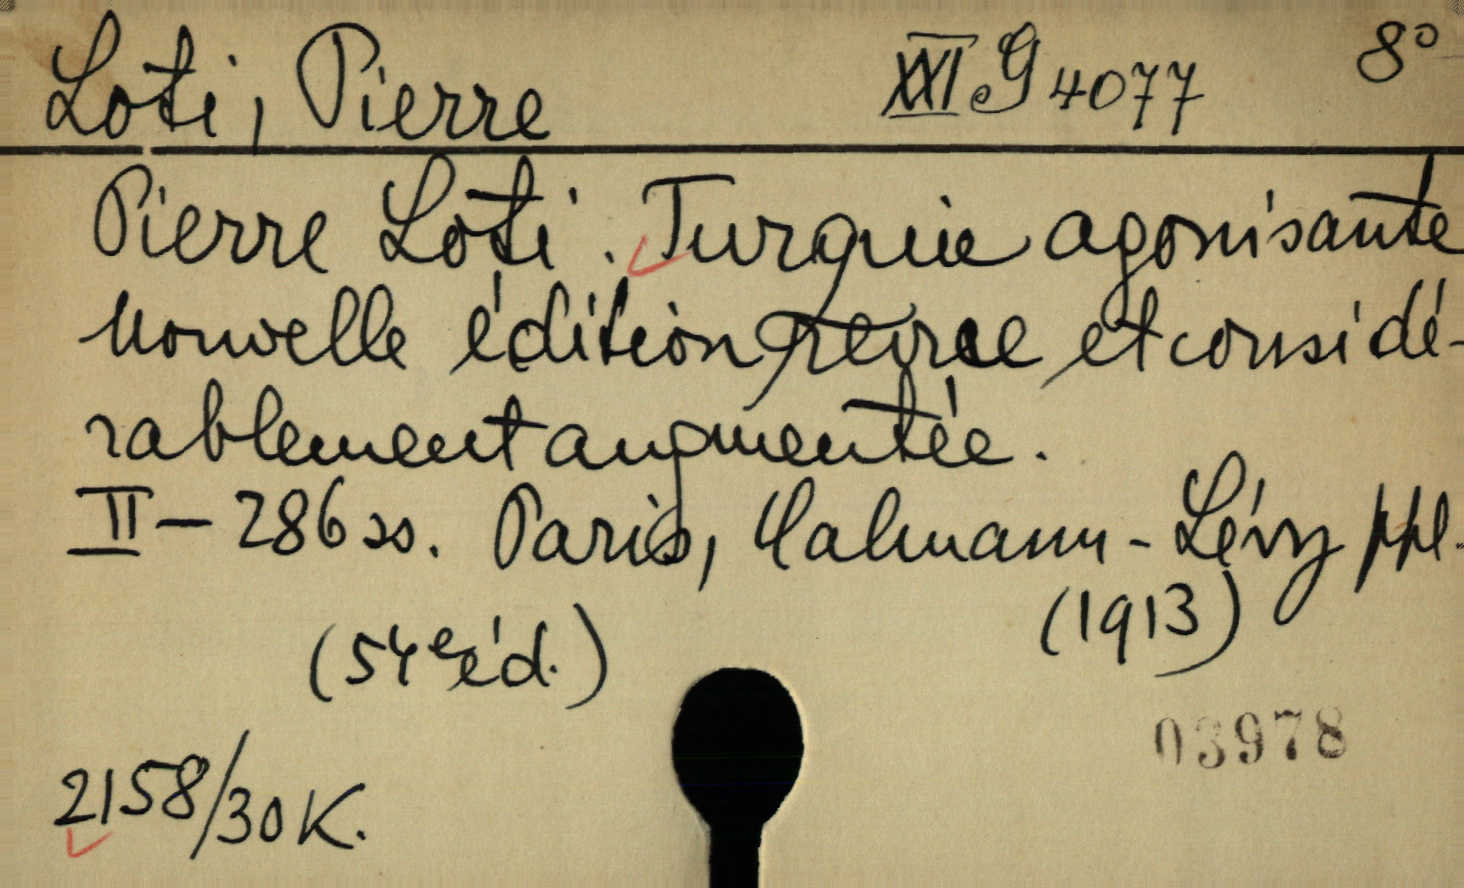 Loti, Pierre XXI G 4077 8°
Pierre Loti. Turquie agonisante
Nouvelle édition revue et considé-
rablement augmentée.
II - 286 ss. Paris, Calmann-Lévy ppl.
(1913)
(54e éd.)
03978
2158/30 K.